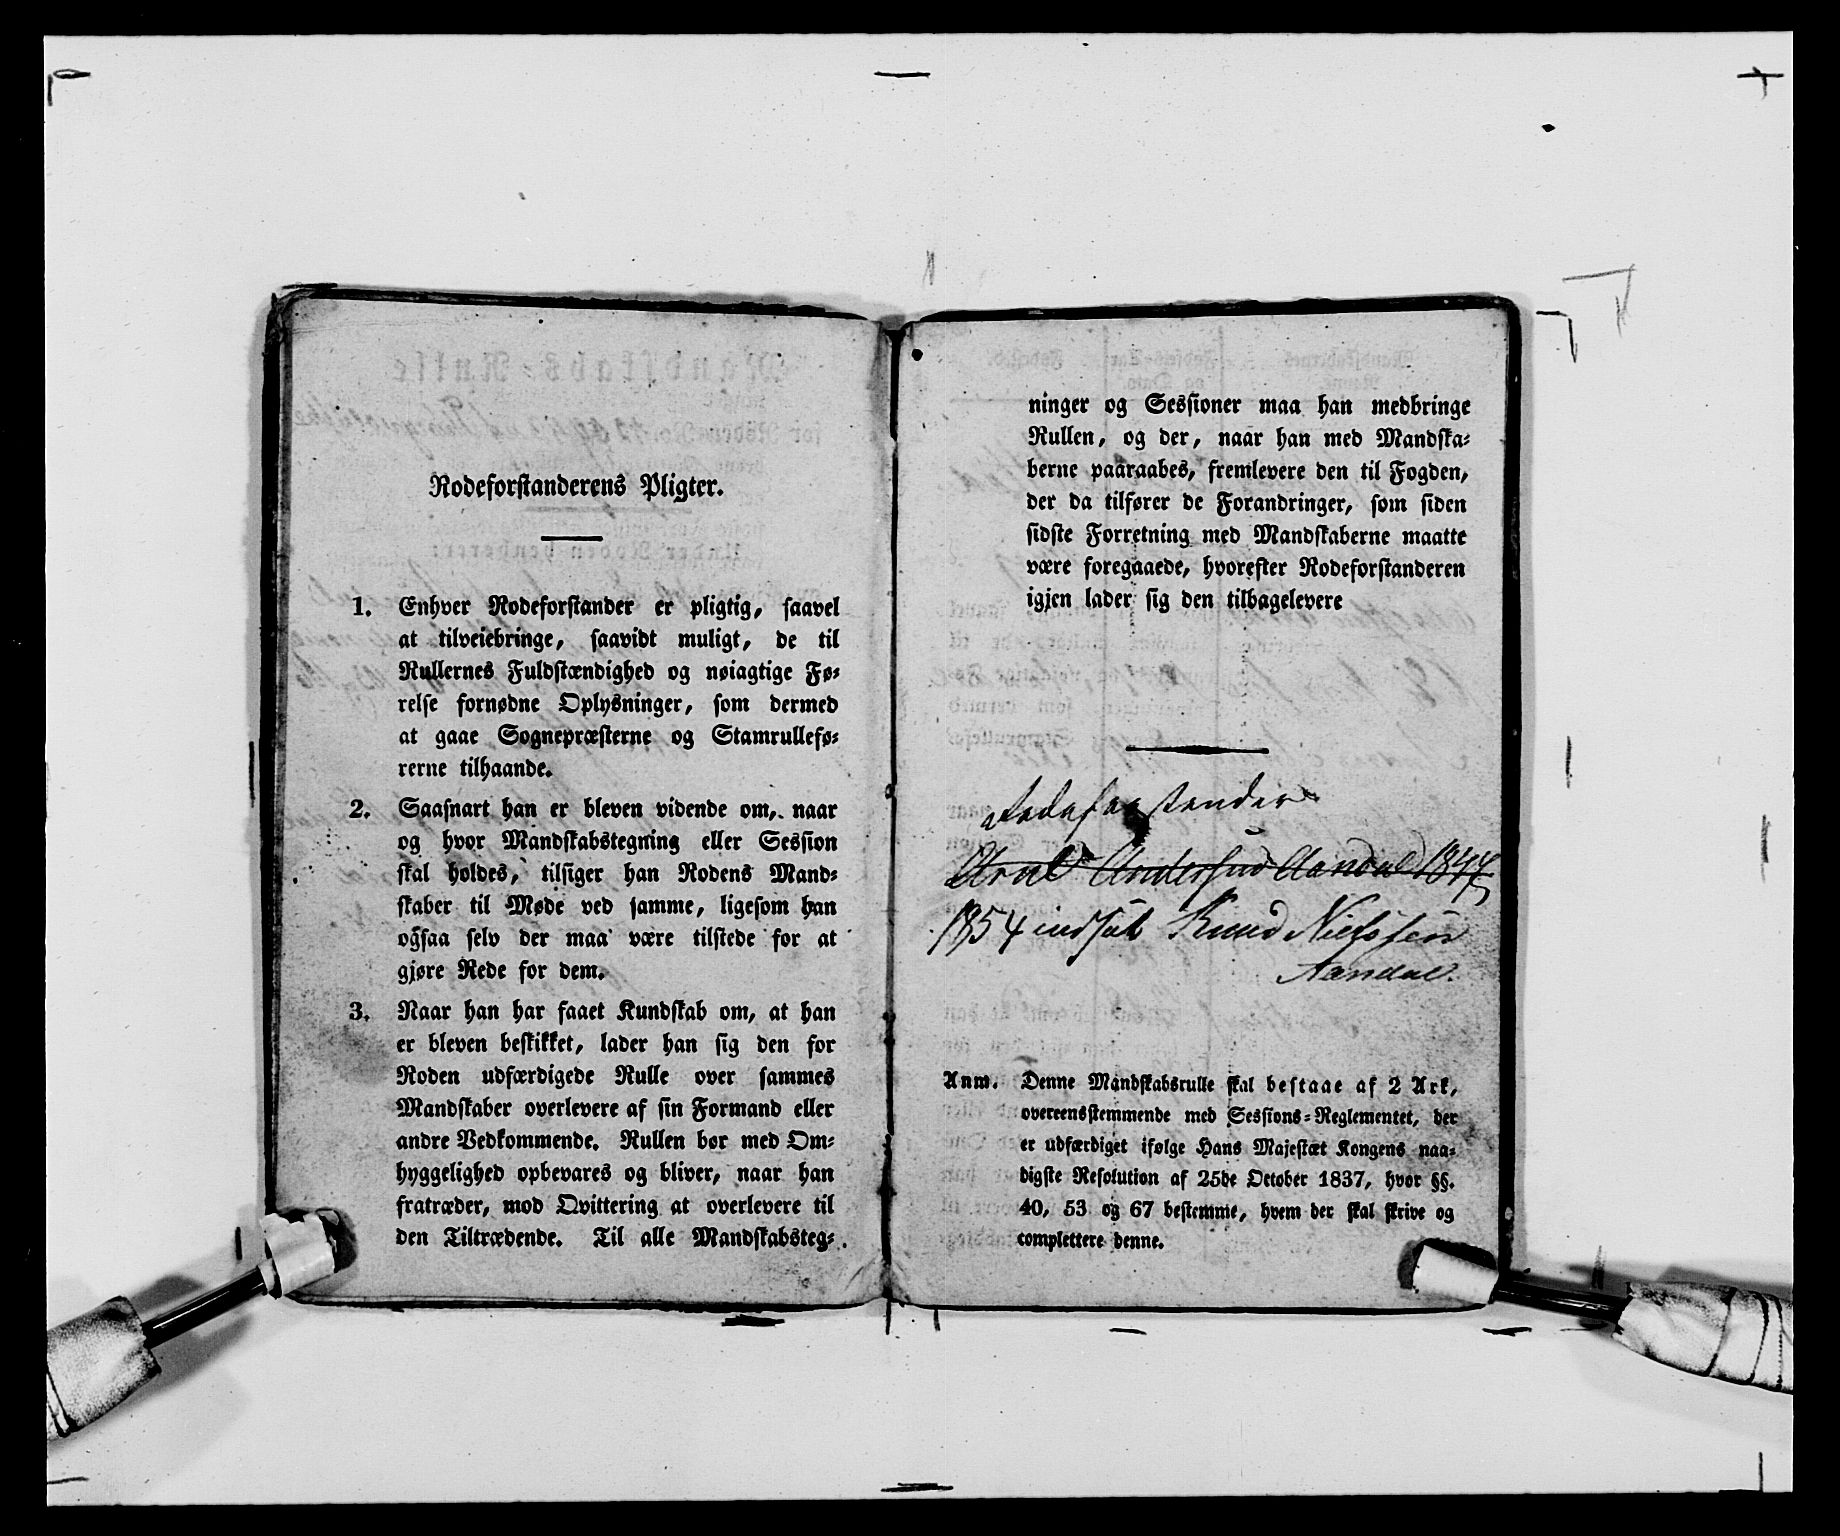 Rodeforstanderens Pligter.
1. Enhver Rodeforstander er pligtig, saavel
at tilveiebringe, saavidt muligt, de til
Rullernes Fuldstændighed og nøiagtige Fø-
relse fornødne Oplysninger, som dermed
at gaae Sognepræsterne og Stamrullefø-
rerne tilhaande.
2. Saasnart han er bleven vidende om, naar
og hvor Mandskabstegning eller Session
skal holdes, tilsiger han Rodens Mand-
skaber til Møde ved samme, ligesom han
ogsaa selv der maa være tilstede for at
gjøre Rede for dem.
3. Naar han har faaet Kundskab om, at han
er bleven beskikket, lader han sig den for
Roden udfærdigede Rulle over sammes
Mandskaber overlevere af sin Formand eller
andre Vedkommende. Rullen bør med Om-
hyggelighed opbevares og bliver, naar han
fratræder, mod Qvittering at overlevere til
den Tiltrædende. Til alle Mandskabsteg-
ninger og Sessioner maa han medbringe
Rullen, og der, naar han med Mandska-
berne paaraabes, fremlevere den til Fogden,
der da tilfører de Forandringer, som siden
sidste Forretning med Mandskaberne maatte
være foregaaede, hvorefter Rodeforstanderen
igjen lader sig den tilbagelevere
Rodeforstander
Andersen Aandal 1844
1854 indsat Knud Nielssen
Aandal.
Anm. Denne Mandskabsrulle skal bestaae af 2 Ark,
overeensstemmende med Sessions-Reglementet, der
er udfærdiget ifølge Hans Majestæt Kongens naa-
digste Resolution af 25de October 1837, hvor §§.
40, 53 og 67 bestemme, hvem der skal skrive og
complettere denne.